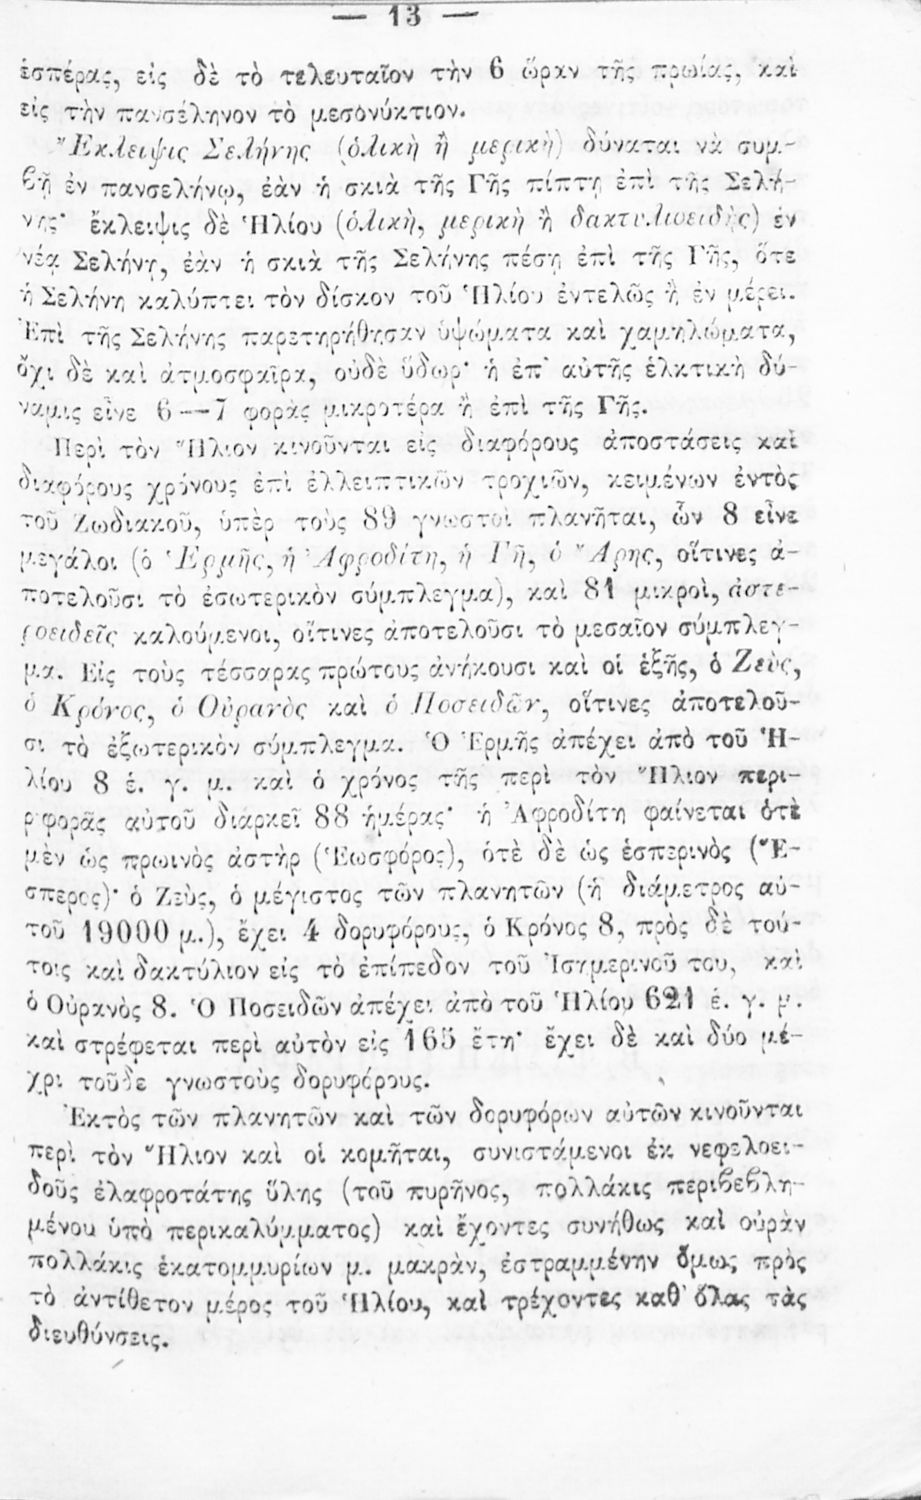 — 13 —
ἑσπέρας, εἰς δὲ τὸ τελευταῖον τὴν 6 ὥραν τῆς πρωίας, καὶ
εἰς τὴν πανσέληνον τὸ μεσονύκτιον.
Ἔκλειψις Σελήνης (ὁλικὴ ἢ μερικὴ) δύναται νὰ συμ-
βῇ ἐν πανσελήνῳ, ἐὰν ἡ σκιὰ τῆς Γῆς πίπτῃ ἐπὶ τῆς Σελή-
νης· ἔκλειψις δὲ Ἡλίου (ὁλικὴ, μερικὴ ἢ δακτυλιοειδὴς) ἐν
νέᾳ Σελήνῃ, ἐὰν ἡ σκιὰ τῆς Σελήνης πέσῃ ἐπὶ τῆς Γῆς, ὅτε
ἡ Σελήνη καλύπτει τὸν δίσκον τοῦ Ἡλίου ἐντελῶς ἢ ἐν μέρει.
Ἐπὶ τῆς Σελήνης παρετηρήθησαν ὑψώματα καὶ χαμηλώματα,
ὄχι δὲ καὶ ἀτμοσφαῖρα, οὐδὲ ὕδωρ· ἡ ἐπ' αὐτῆς ἑλκτικὴ δύ-
ναμις εἶνε 6—7 φορὰς μικροτέρα ἢ ἐπὶ τῆς Γῆς.
Περὶ τὸν Ἥλιον κινοῦνται εἰς διαφόρους ἀποστάσεις καὶ
διαφόρους χρόνους ἐπὶ ἐλλειπτικῶν τροχιῶν, κειμένων ἐντὸς
τοῦ Ζωδιακοῦ, ὑπὲρ τοὺς 89 γνωστοὶ πλανῆται, ὧν 8 εἶνε
μεγάλοι (ὁ Ἑρμῆς, ἡ Ἀφροδίτη, ἡ Γῆ, ὁ Ἄρης, οἵτινες ἀ-
ποτελοῦσι τὸ ἐσωτερικὸν σύμπλεγμα), καὶ 81 μικροὶ, ἀστε-
ροειδεῖς καλούμενοι, οἵτινες ἀποτελοῦσι τὸ μεσαῖον σύμπλεγ-
μα. Εἰς τοὺς τέσσαρας πρώτους ἀνήκουσι καὶ οἱ ἑξῆς, ὁ Ζεὺς,
ὁ Κρόνος, ὁ Οὐρανὸς καὶ ὁ Ποσειδῶν, οἵτινες ἀποτελοῦ-
σι τὸ ἐξωτερικὸν σύμπλεγμα. Ὁ Ἑρμῆς ἀπέχει ἀπὸ τοῦ Ἡ-
λίου 8 ἑ. γ. μ. καὶ ὁ χρόνος τῆς περὶ τὸν Ἥλιον περι-
φορᾶς αὐτοῦ διαρκεῖ 88 ἡμέρας· ἡ Ἀφροδίτη φαίνεται ὁτὲ
μὲν ὡς πρωινὸς ἀστὴρ (Ἑωσφόρος), ὁτὲ δὲ ὡς ἑσπερινὸς (Ἕ-
σπερος)· ὁ Ζεὺς, ὁ μέγιστος τῶν πλανητῶν (ἡ διάμετρος αὐ-
τοῦ 19000 μ.), ἔχει 4 δορυφόρους, ὁ Κρόνος 8, πρὸς δὲ τού-
τοις καὶ δακτύλιον εἰς τὸ ἐπίπεδον τοῦ Ἰσημερινοῦ του, καὶ
ὁ Οὐρανὸς 8. Ὁ Ποσειδῶν ἀπέχει ἀπὸ τοῦ Ἡλίου 621 ἑ. γ. μ.
καὶ στρέφεται περὶ αὐτὸν εἰς 165 ἔτη· ἔχει δὲ καὶ δύο μέ-
χρι τοῦδε γνωστοὺς δορυφόρους.
Ἐκτὸς τῶν πλανητῶν καὶ τῶν δορυφόρων αὐτῶν κινοῦνται
περὶ τὸν Ἥλιον καὶ οἱ κομῆται, συνιστάμενοι ἐκ νεφελοει-
δοῦς ἐλαφροτάτης ὕλης (τοῦ πυρῆνος, πολλάκις περιβεβλη-
μένου ὑπὸ περικαλύμματος) καὶ ἔχοντες συνήθως καὶ οὐρὰν
πολλάκις ἑκατομμυρίων μ. μακρὰν, ἐστραμμένην ὅμως πρὸς
τὸ ἀντίθετον μέρος τοῦ Ἡλίου, καὶ τρέχοντες καθ' ὅλας τὰς
διευθύνσεις.